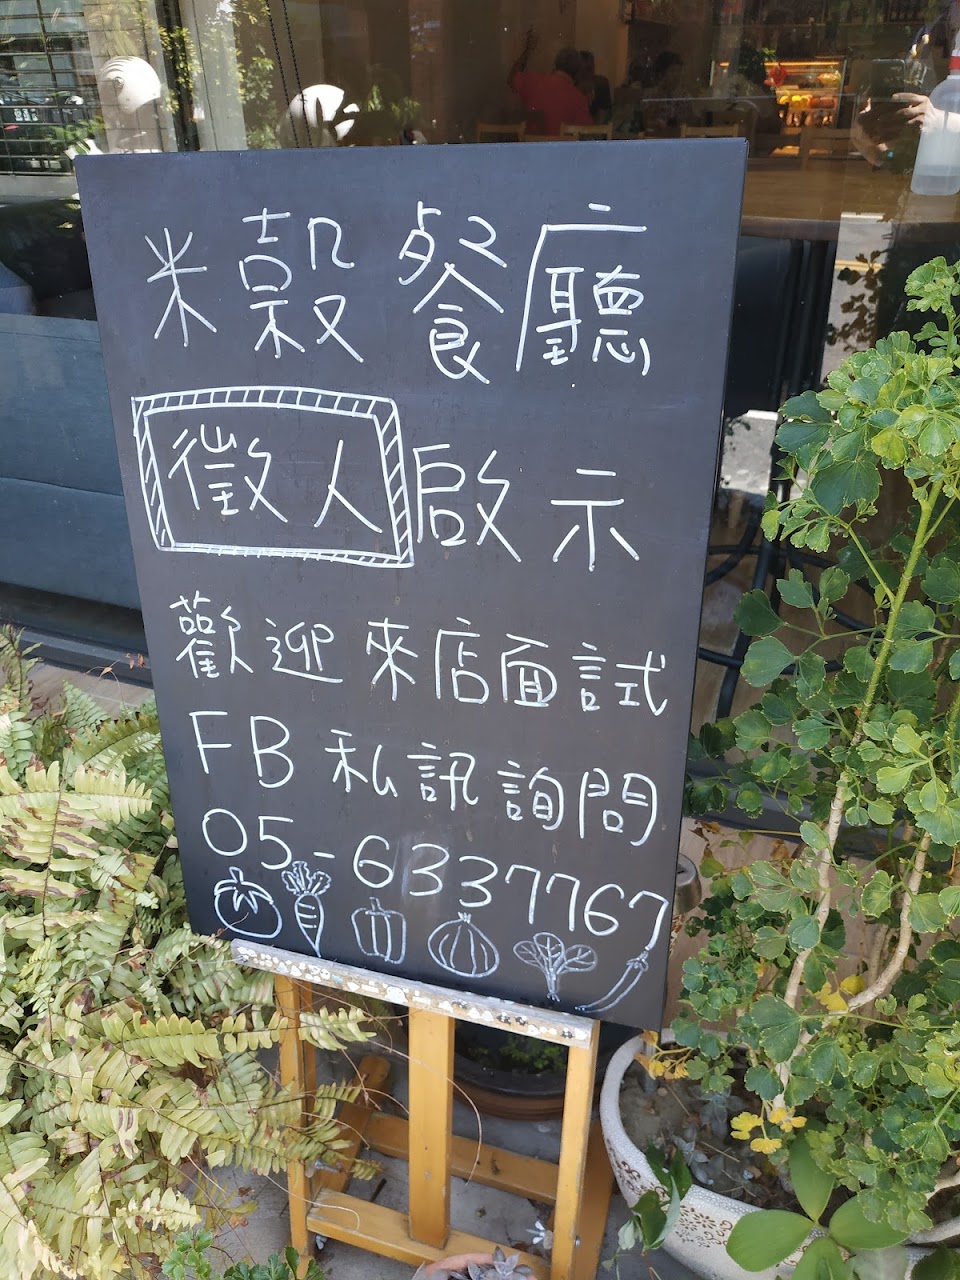 米穀餐廳
徵人啟示
歡迎來店面試
FB私訊詢問
05-6337767